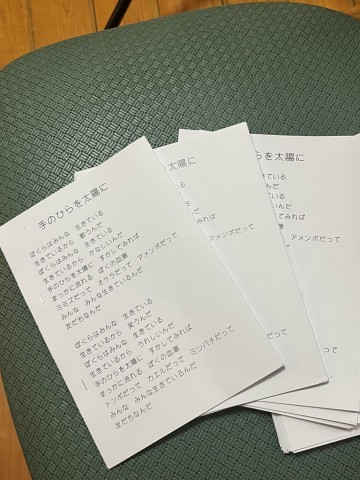 手のひらを太陽に
ぼくらはみんな 生きている
生きているから 歌うんだ
ぼくらはみんな 生きている
生きているから かなしいんだ
手のひらを太陽に すかしてみれば
まっかに流れる ぼくの血潮
ミミズだって オケラだって アメンボだって
みんな みんな生きているんだ
友だちなんだ
ぼくらはみんな 生きている
生きているから 笑うんだ
ぼくらはみんな 生きている
生きているから うれしいんだ
手のひらを太陽に すかしてみれば
まっかに流れる ぼくの血潮
トンボだって カエルだって ミツバチだって
みんな みんな生きているんだ
友だちなんだ
を太陽に
らを太陽に